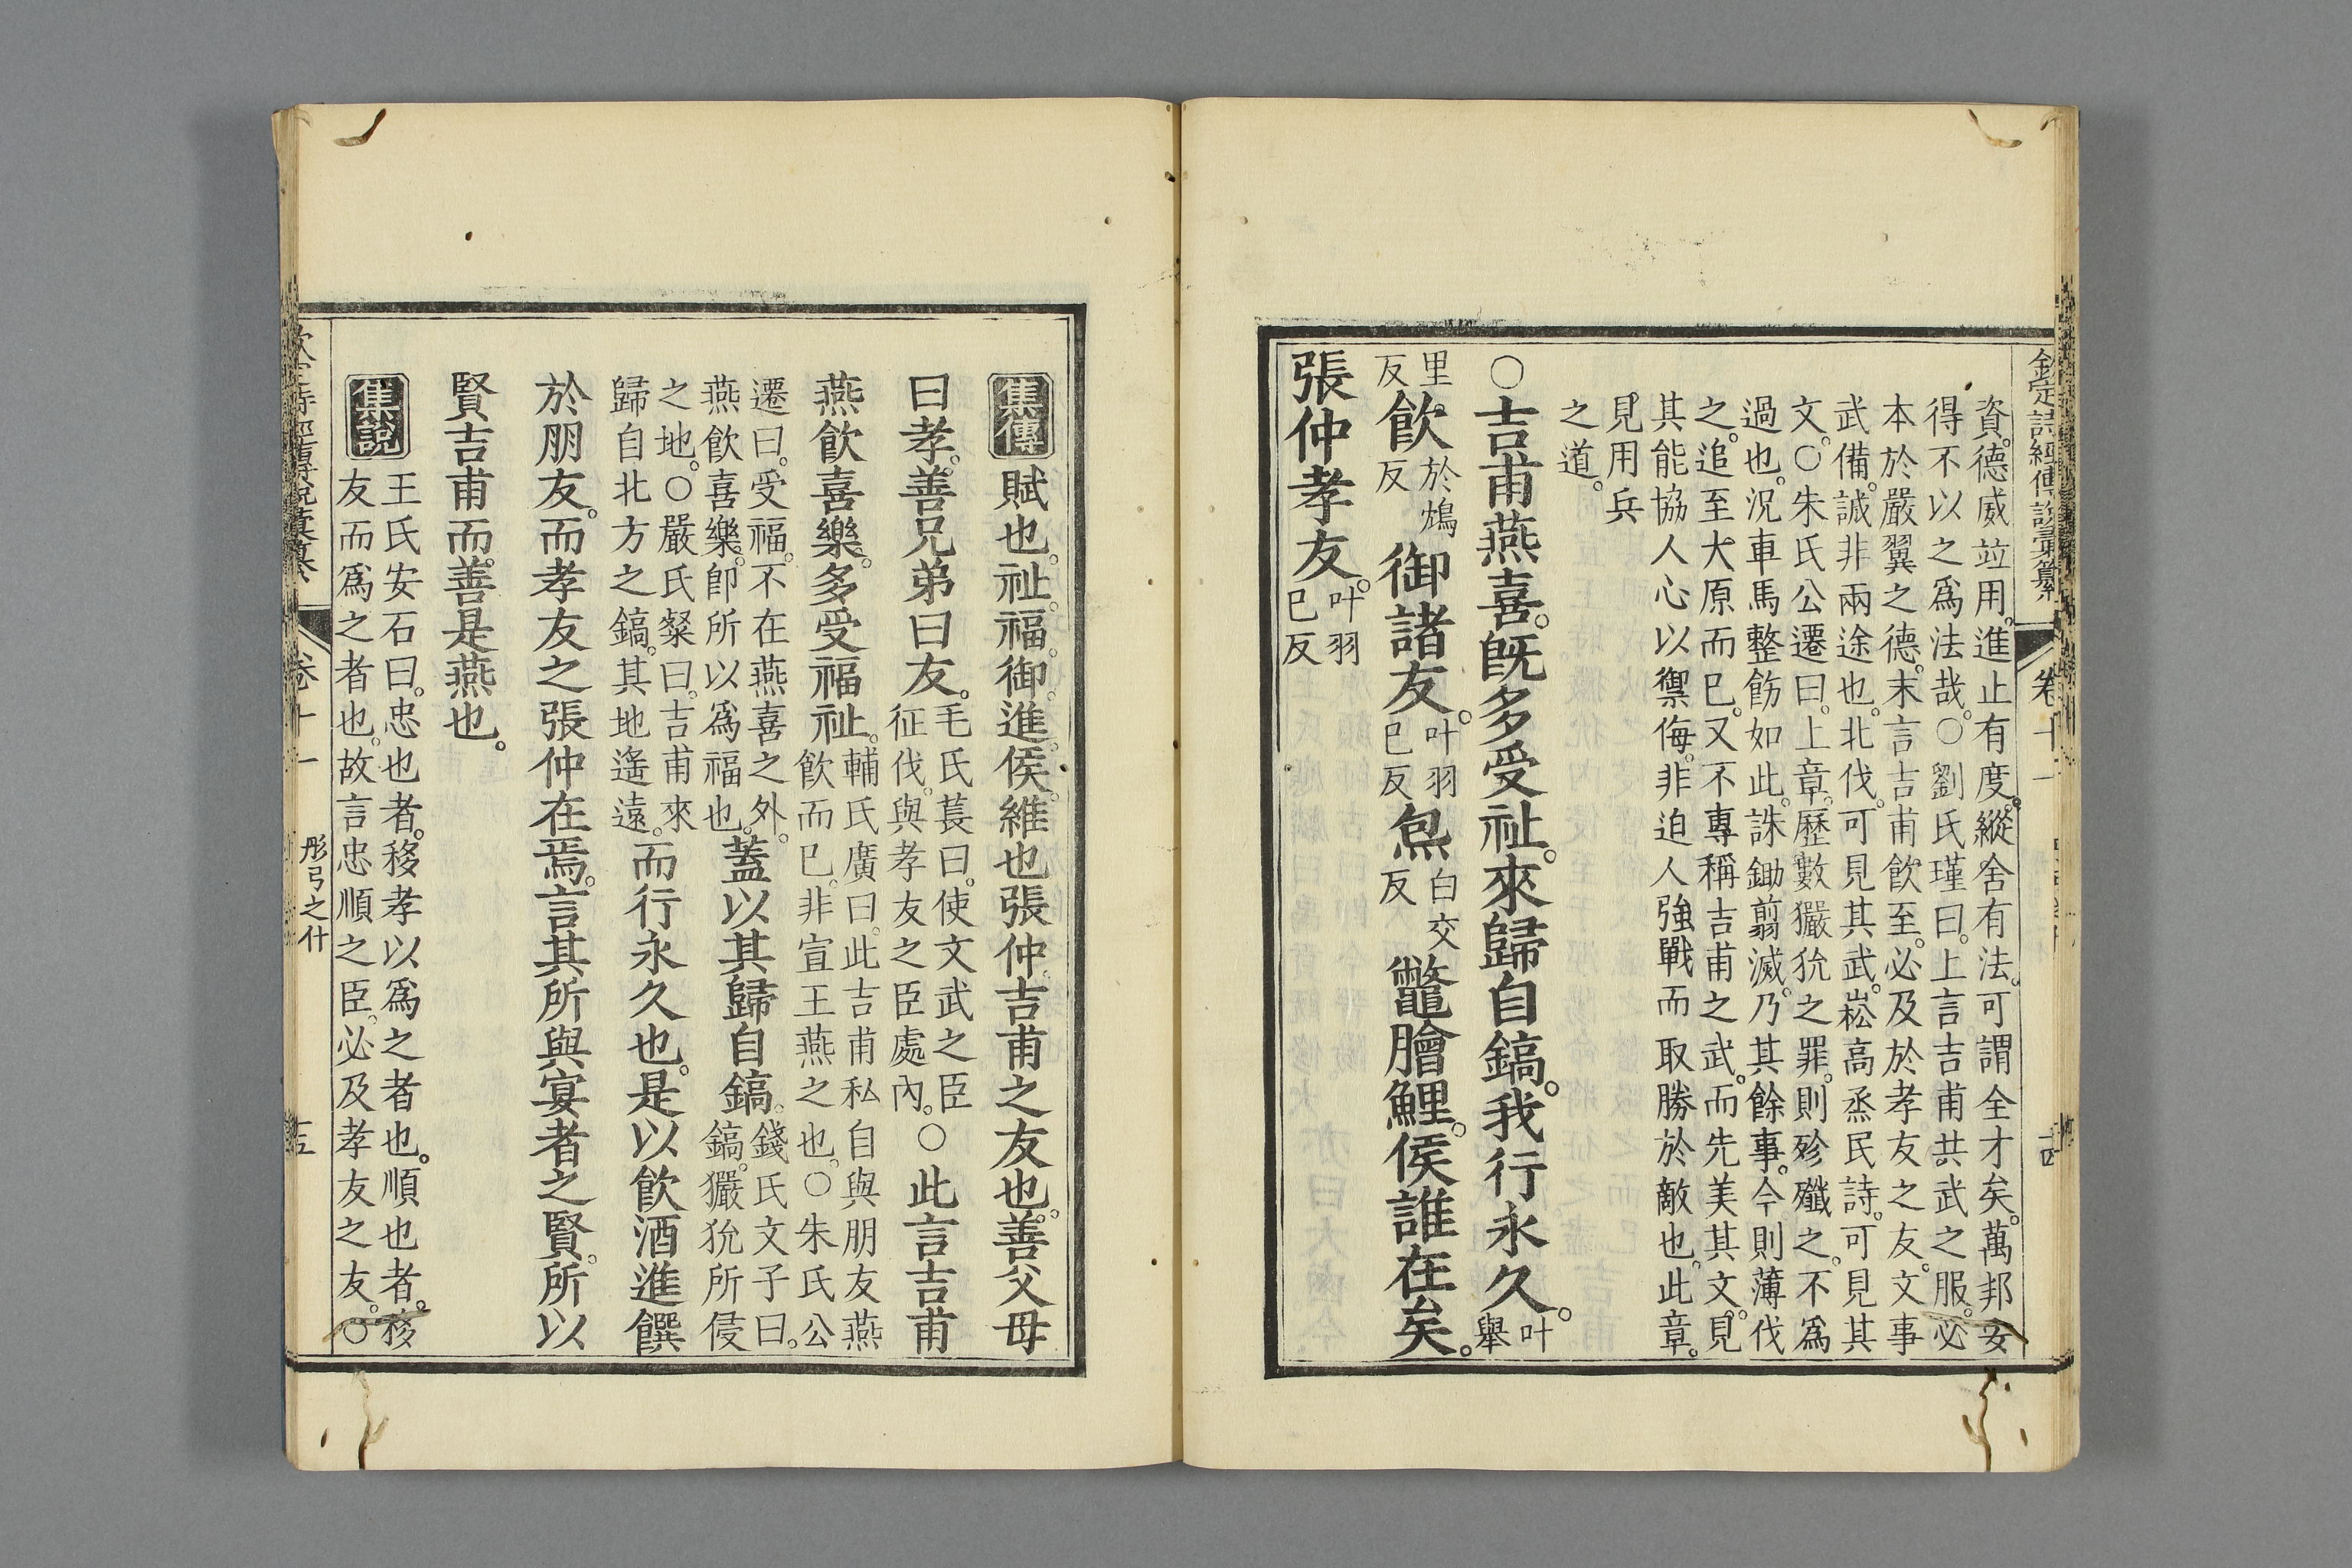 欽定詩經傳說彙纂 卷十一 十四
資。德威竝用。進止有度。縱舍有法。可謂全才矣。萬邦安
得不以之爲法哉。○劉氏瑾曰。上言吉甫共武之服。必
本於嚴翼之德。末言吉甫飮至。必及於孝友之友。文事
武備。誠非兩途也。北伐。可見其武。崧高烝民詩。可見其
文。○朱氏公遷曰。上章。歷數玁狁之罪。則殄殲之。不爲
過也。況車馬整飭如此。誅鋤翦滅。乃其餘事。今則薄伐
之。追至大原而已。又不專稱吉甫之武。而先美其文。見
其能協人心以禦侮。非迫人強戰而取勝於敵也。此章。
見用兵
之道。
○吉甫燕喜。旣多受祉。來歸自鎬。我行永久。叶舉
里反飮於鴆反御諸友。叶羽已反炰白交反鼈膾鯉。侯誰在矣。
張仲孝友。叶羽已反
集傳 賦也。祉。福。御。進。侯。維也。張仲。吉甫之友也。善父母
曰孝。善兄弟曰友。毛氏萇曰。使文武之臣征伐。與孝友之臣處內。○此言吉甫
燕飮喜樂。多受福祉。輔氏廣曰。此吉甫私自與朋友燕飮而已。非宣王燕之也。○朱氏公
遷曰。受福。不在燕喜之外。燕飮喜樂。卽所以爲福也。蓋以其歸自鎬。錢氏文子曰。鎬。玁狁所侵
之地。○嚴氏粲曰。吉甫來歸自北方之鎬。其地遙遠。而行永久也。是以飮酒進饌
於朋友。而孝友之張仲在焉。言其所與宴者之賢。所以
賢吉甫而。善是燕也。
集說 王氏安石曰。忠也者。移孝以爲之者也。順也者。移
友而爲之者也。故言忠順之臣。必及孝友之友。○
卷十一 彤弓之什 十五